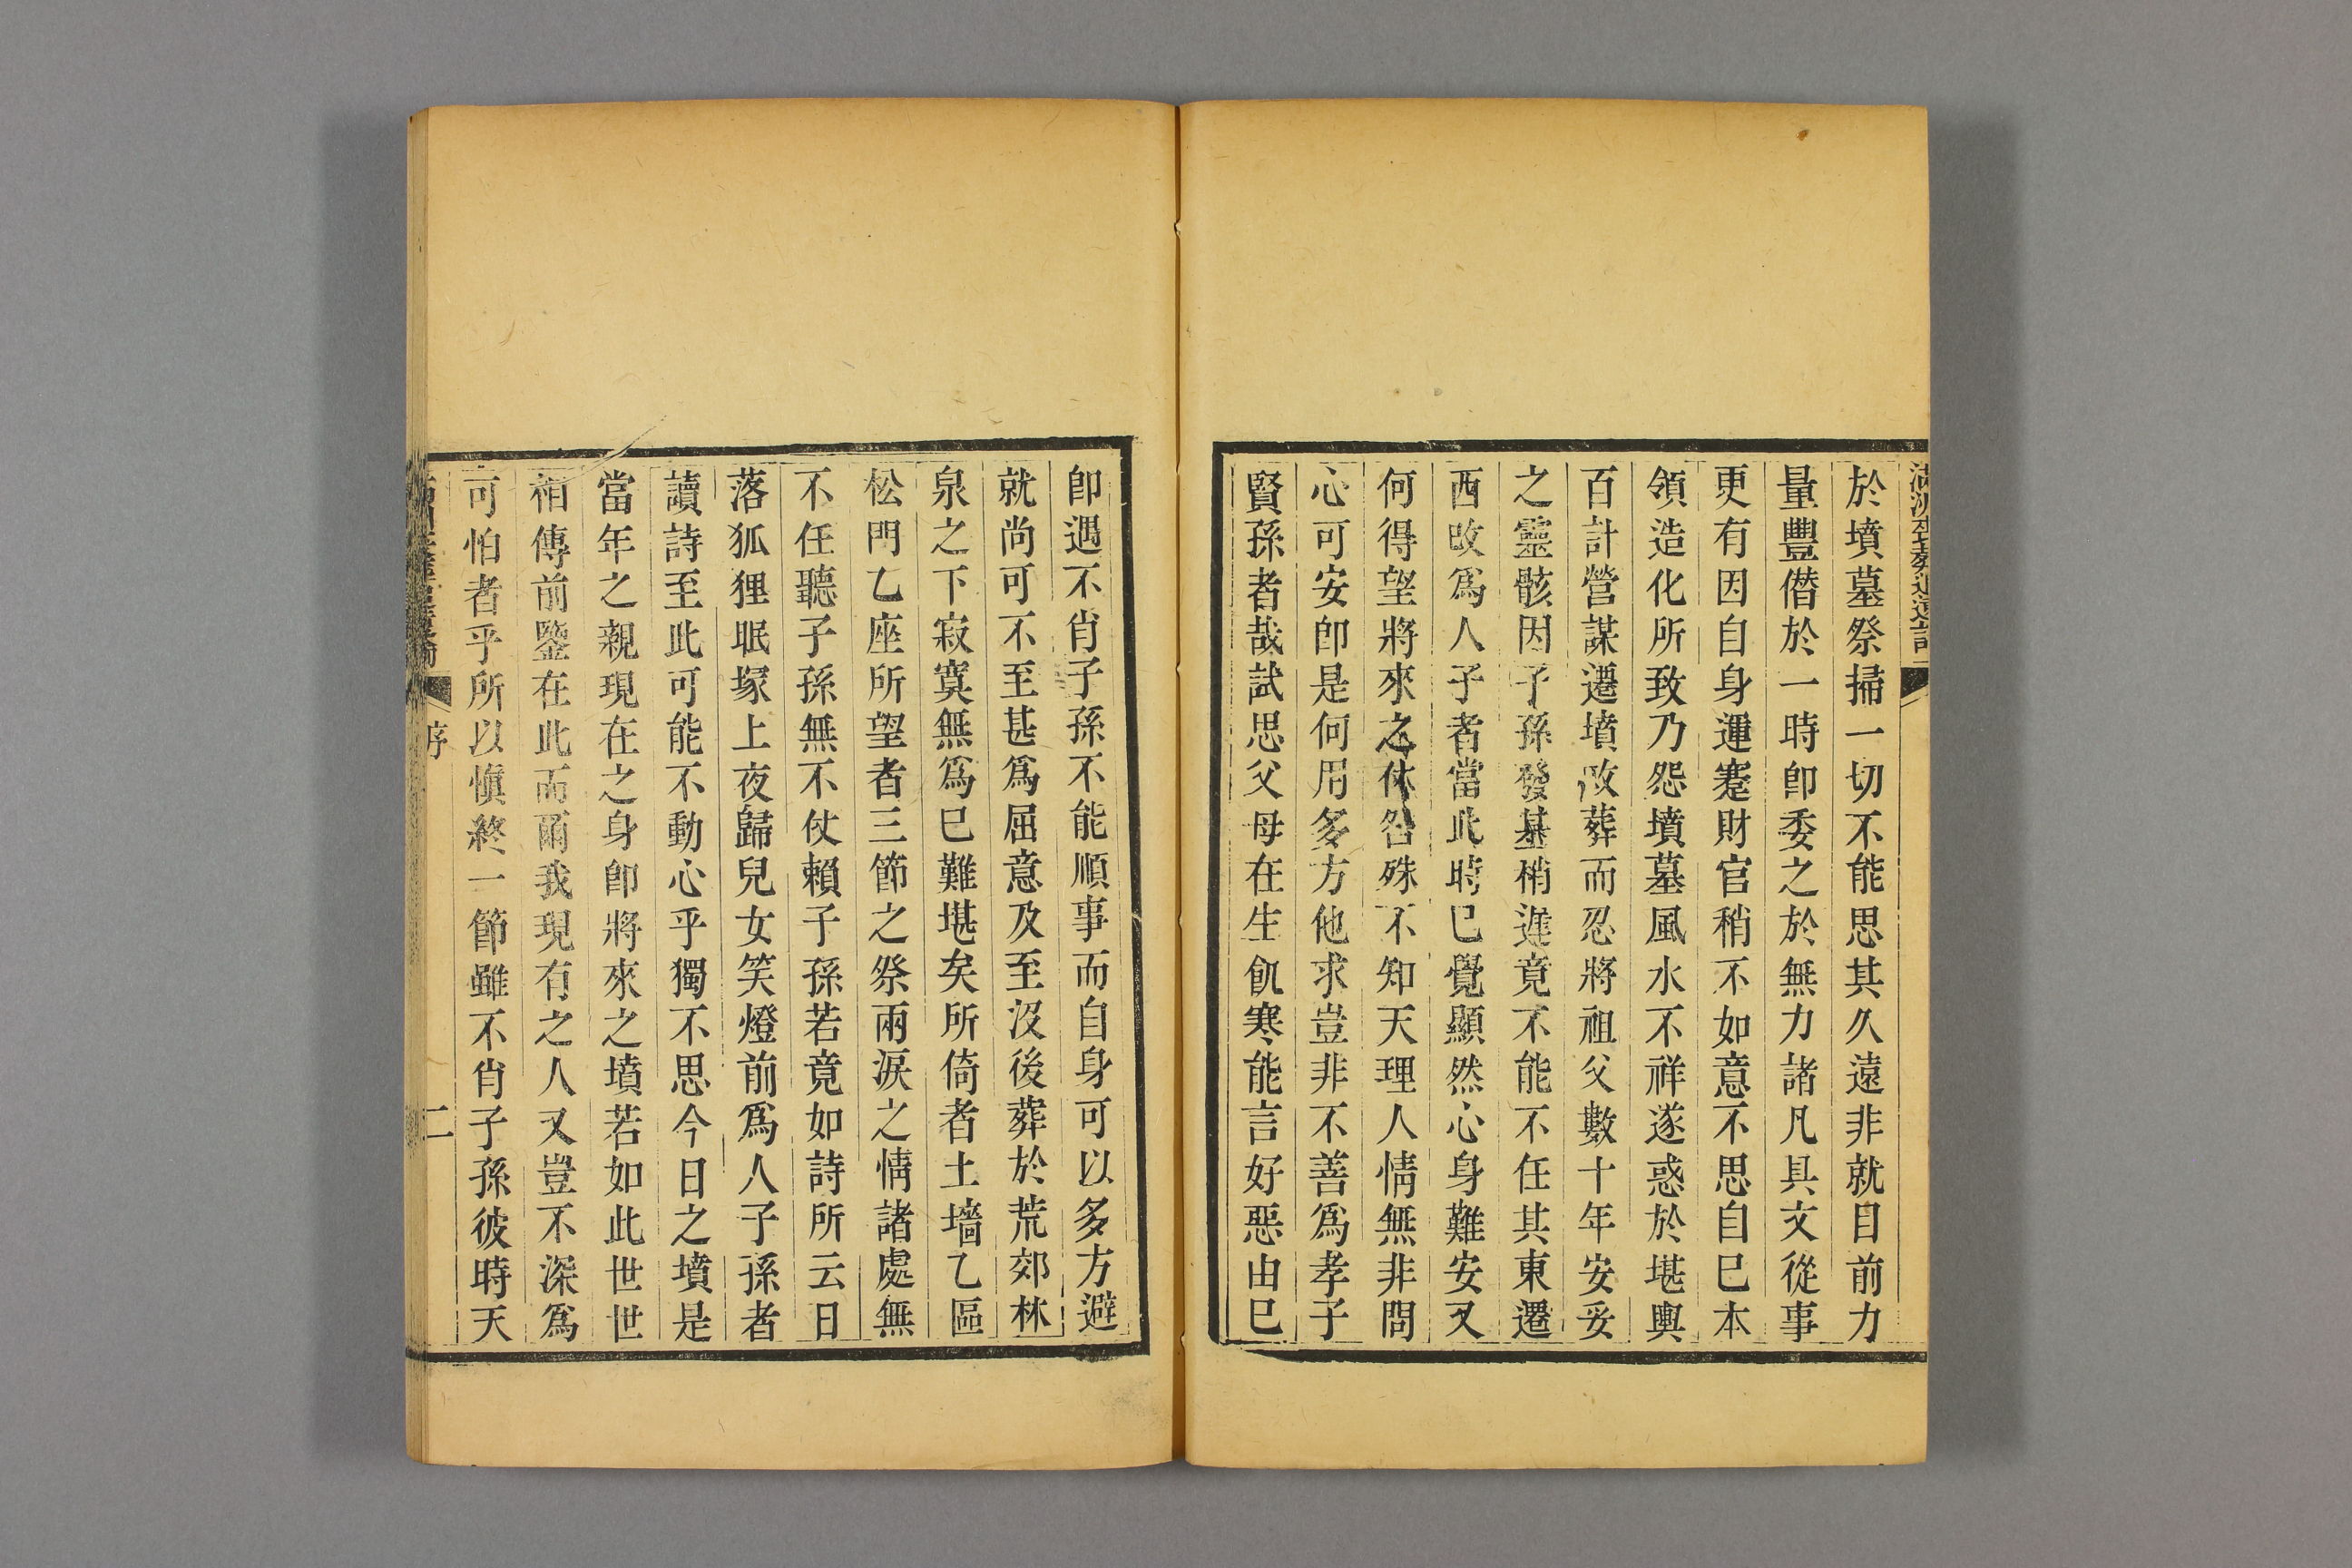 於墳墓祭掃一切不能思其久遠非就目前力
量豐僭於一時卽委之於無力諸凡具文從事
更有因自身運蹇財官稍不如意不思自已本
領造化所致乃怨墳墓風水不祥遂惑於堪輿
百計營謀遷墳改葬而忍將祖父數十年安妥
之靈骸因子孫發基稍遲竟不能不任其東遷
西改爲人子者當此時巳覺顯然心身難安又
何得望將來之休咎殊不知天理人情無非問
心可安卽是何用多方他求豈非不善爲孝子
賢孫者哉試思父母在生飢寒能言好惡由巳
卽遇不肖子孫不能順事而自身可以多方避
就尚可不至甚爲屈意及至没後葬於荒郊林
泉之下寂寞無爲巳難堪矣所倚者土墻乙區
松門乙座所望者三節之祭兩淚之情諸處無
不任聽子孫無不仗賴子孫若竟如詩所云日
落狐狸眠塚上夜歸兒女笑燈前爲人子孫者
讀詩至此可能不動心乎獨不思今日之墳是
當年之親現在之身卽將來之墳若如此世世
相傳前鑒在此而爾我現有之人又豈不深爲
可怕者乎所以愼終一節雖不肖子孫彼時天
序
二